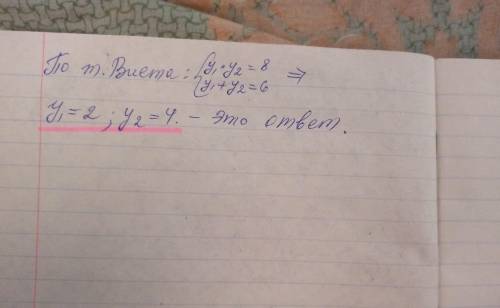 По т. Виета: { y₁·y₂ = 8
y₁+y₂ = 6 ⇒
y₁ = 2 ; y₂ = 4. – это ответ.